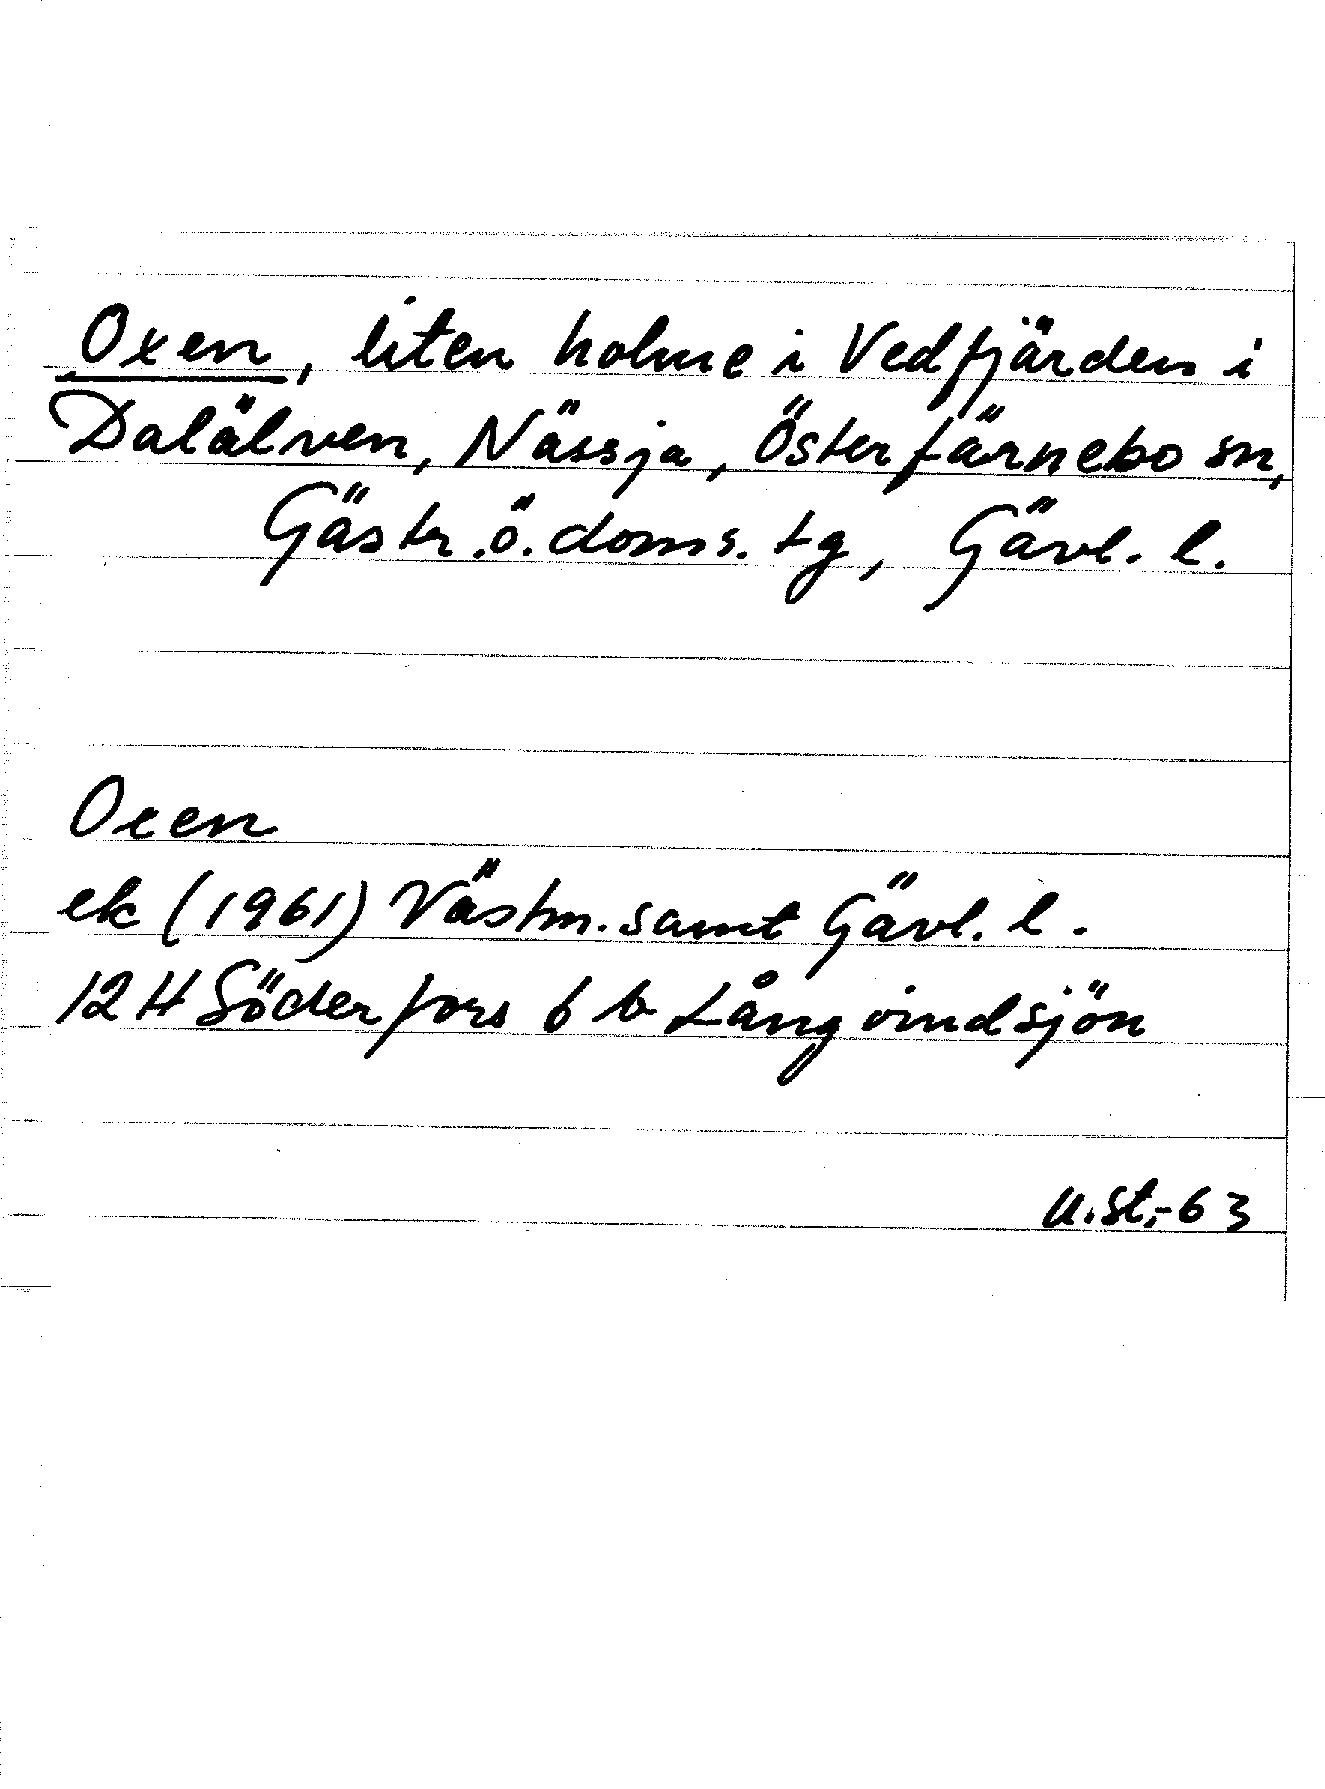 Oxen, liten holme i Vedfjärden i
Dalälven, Nässja, Österfärnebo sn,
Gästr.ö.doms.tg, Gävl. l.
Oxen
ek (1961) Västm. samt Gävl. l.
12 H Söderfors 6 b Långvindsjön
U.St,-63